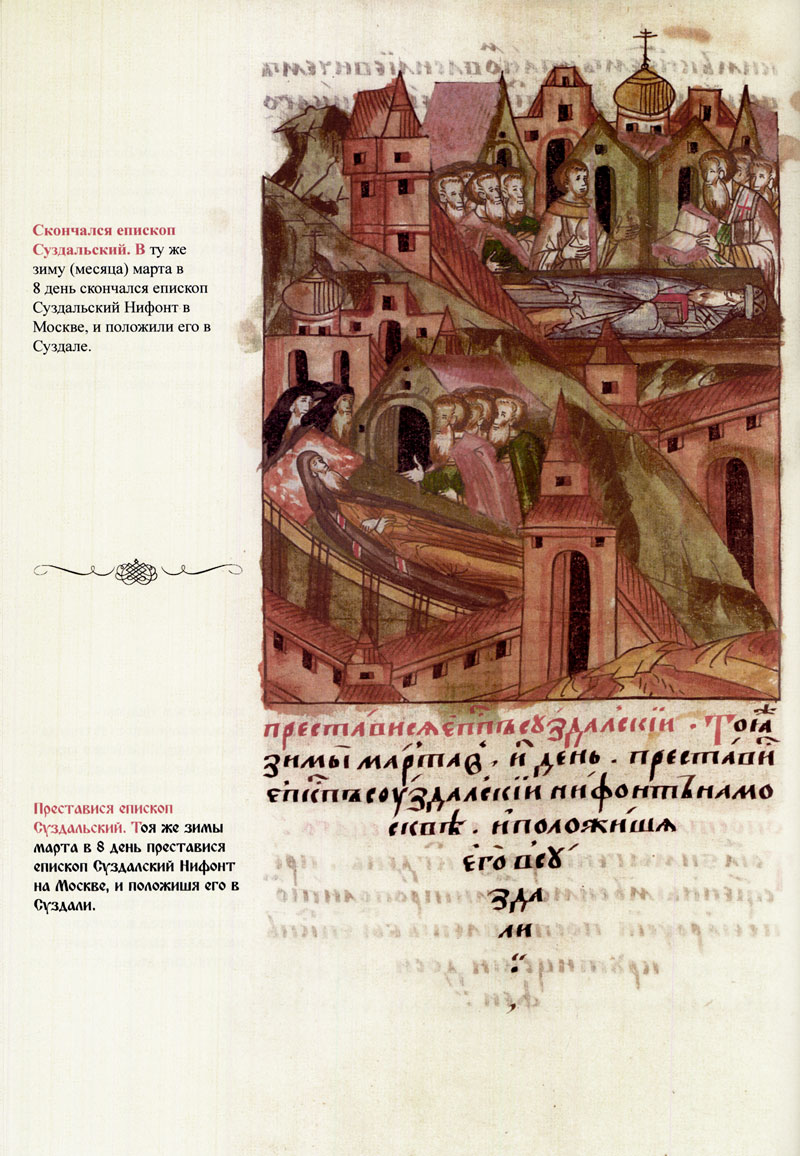 Скончался епископ
Суздальский. В ту же
зиму (месяца) марта в
8 день скончался епископ
Суздальский Нифонт в
Москве, и положили его в
Суздале.
Преставися епископ
Суздальский. Тоя же зимы
марта в 8 день преставися
епископ Суздалский Нифонт
на Москве, и положишя его в
Суздали.
преставися еп҃пъ суздалскїи . Тоꙗ҃ж
зимы марта в҃ , и҃ день . преставис҃
еп҃кпъ суздалскїи нифонтъ намо
сквѣ . иположишѧ
его всу
зда
ли